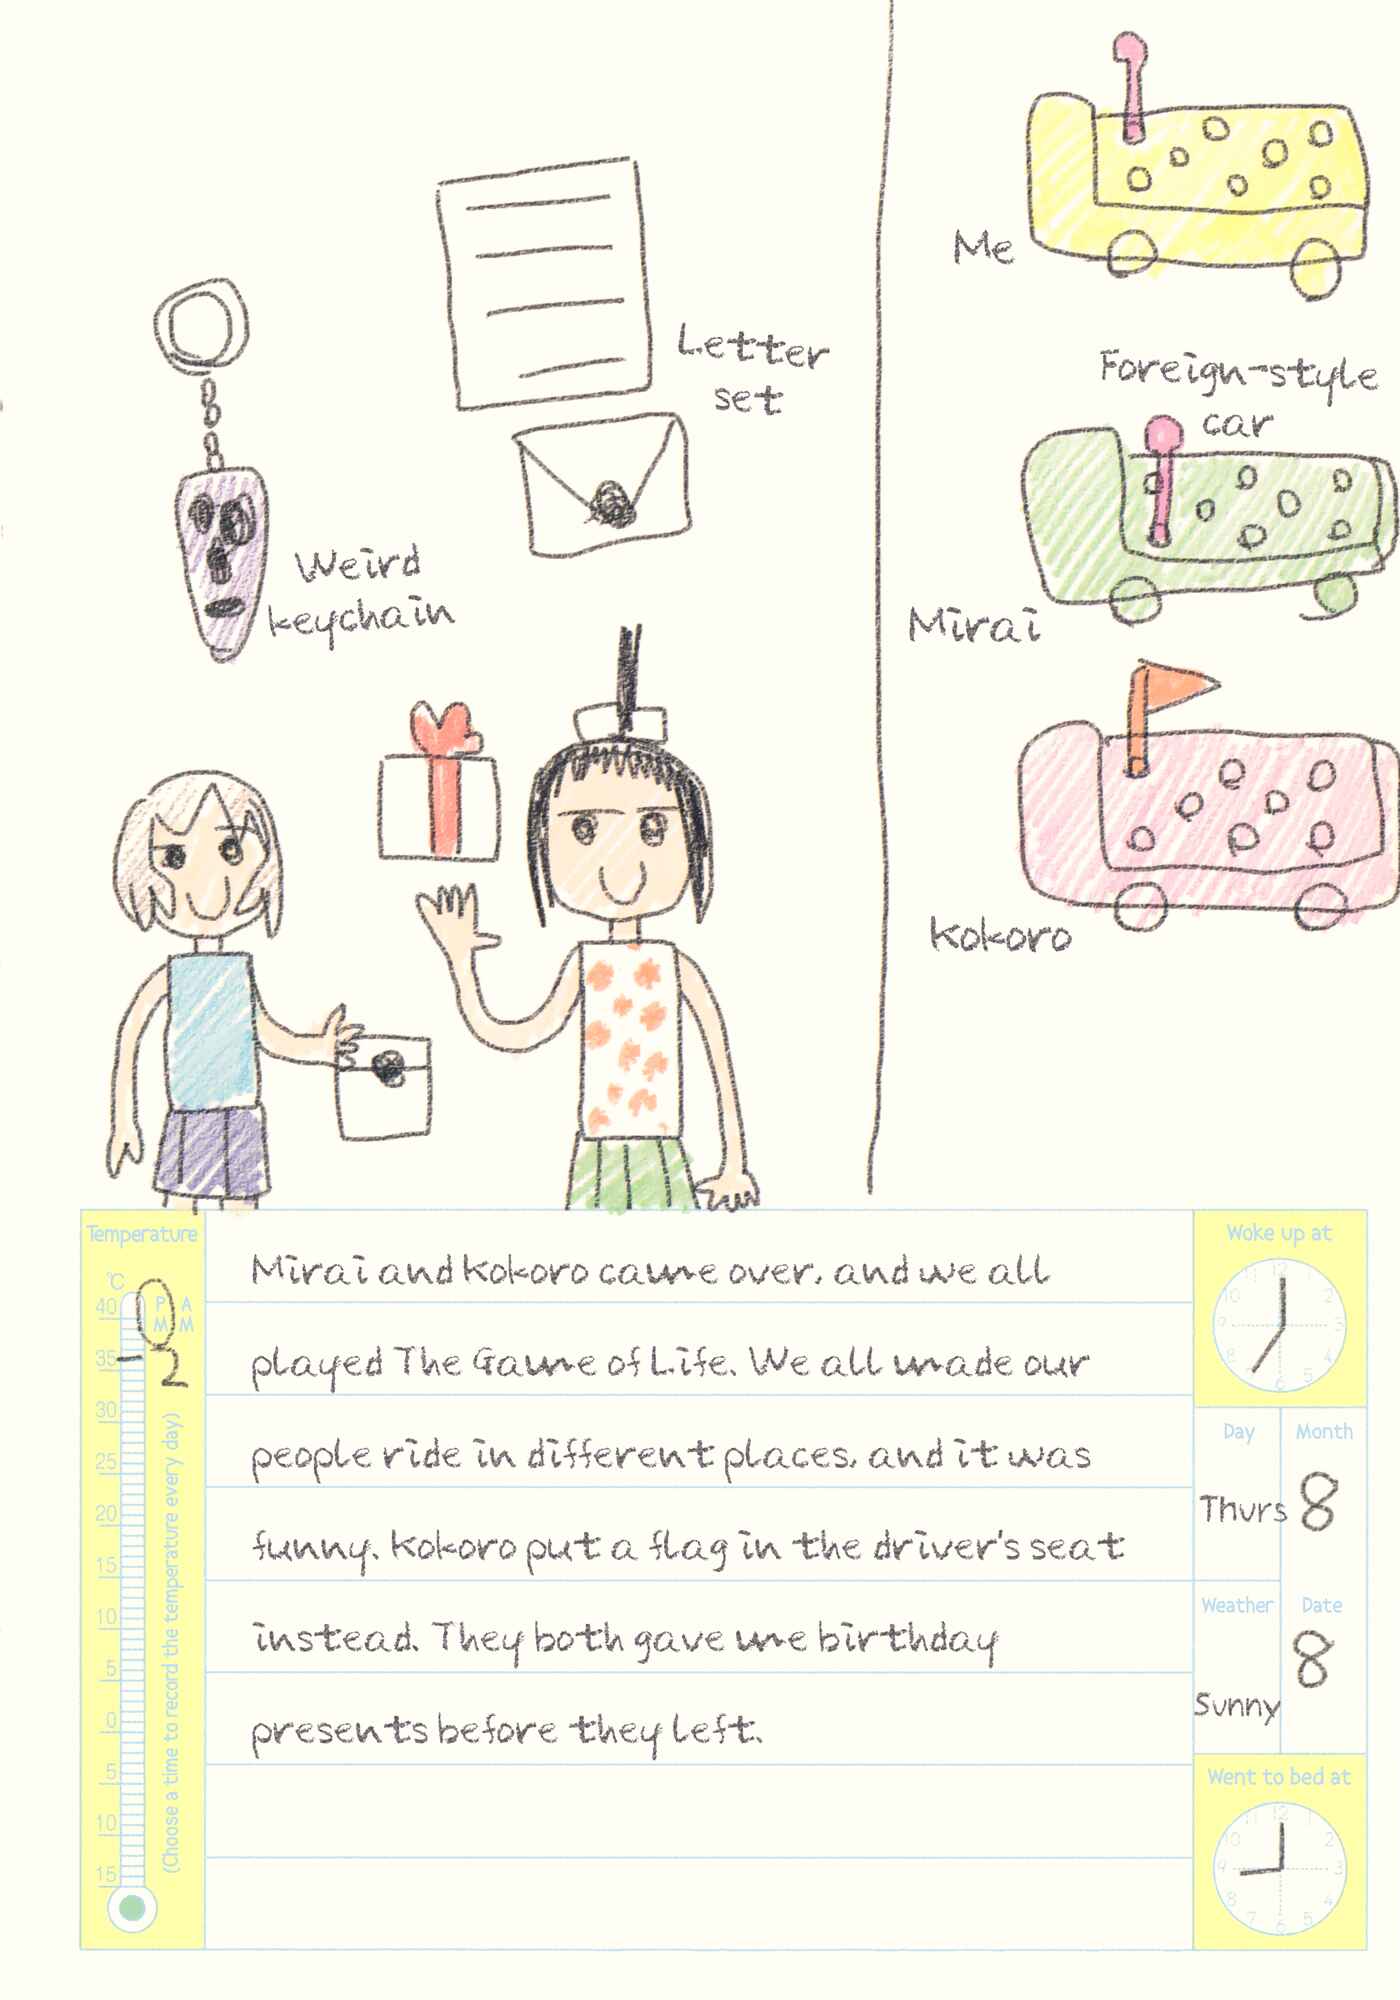 Me
Foreign-style
car
Letter
set
Weird
keychain
Mirai
Kokoro
Temperature
℃
40
35
30
25
20
15
10
5
0
5
10
15
PM AM
2
(Choose a time to record the temperature every day)
Mirai and Kokoro came over, and we all
played The Game of Life. We all made our
people ride in different places, and it was
funny. Kokoro put a flag in the driver's seat
instead. They both gave me birthday
presents before they left.
Woke up at
12 1 2 3 4 5 6 8 9 10 11
Day
Thurs
Month
8
Weather
Sunny
Date
8
Went to bed at
12 1 2 3 4 5 6 7 8 9 10 11